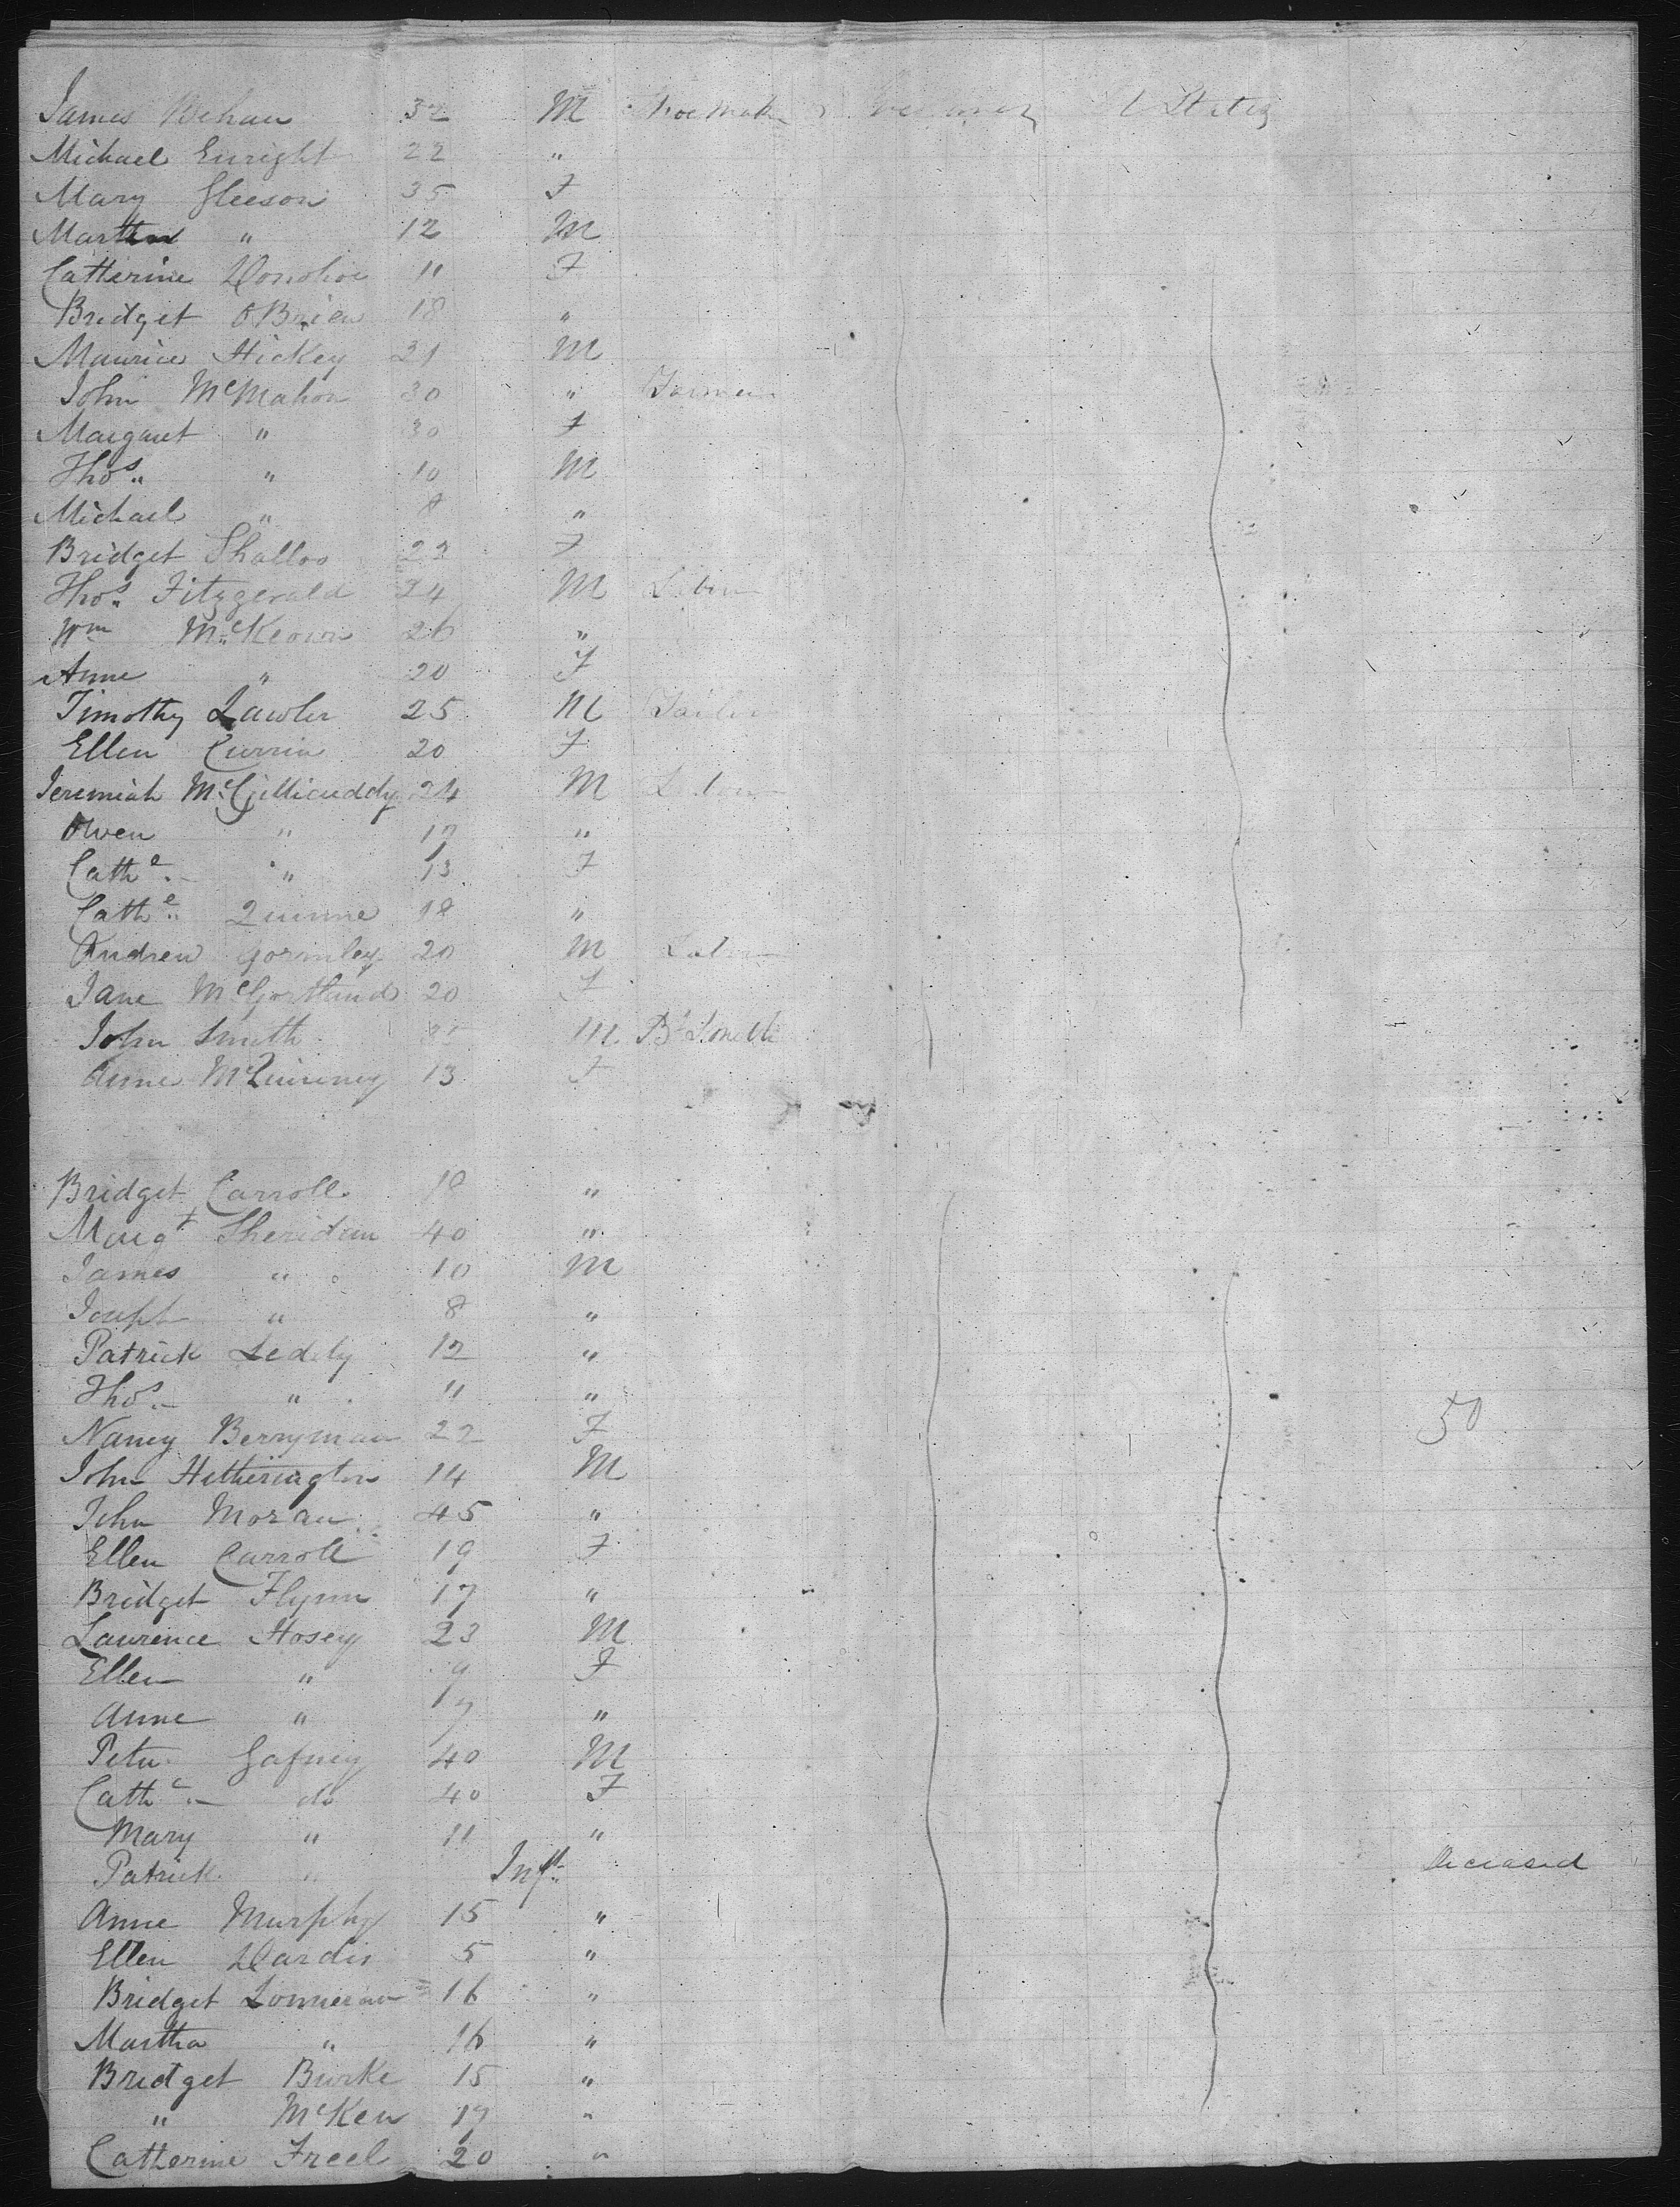 James Behan 32 M Shoe Maker U States
Michael Enright 22 "
Mary Gleeson 35 F
Martin " 12 M
Catherine Donohoe 11 F
Bridget O'Brien 18 "
Maurice Hickey 21 M
John McMahon 30 " Farmer
Margaret " 30 F
Thos. " 10 M
Michael " 8 "
Bridget Shalloo 23 F
Thos. Fitzgerald 24 M Labour
Wm McKeown 26 "
Anne " 20 F
Timothy Lawler 25 M Tailor
Ellen Currin 20 F
Jeremiah McGillicuddy 24 M Labour
Owen " 17 "
Cathe. " 13 F
Cathe. Quinne 18 "
Andrew Gormley 20 M Labour
Jane McGortland 20 F
John Smith M Bk Smith
Anne McQuinney 13 F
Bridget Carroll 18 "
Margt Sheridan 40 "
James " 10 M
Joseph " 8 "
Patrick Leddy 12 "
Thos. " 11 "
Nancy Berryman 22 F 50
John Hetherington 14 M
John Moran 45 "
Ellen Carroll 19 F
Bridget Flynn 17 "
Laurence Hosey 23 M
Ellen " 9 F
Anne " 7 "
Peter Gafney 40 M
Cathe. do 40 F
Mary " 11 "
Patrick " Inft. Deceased
Anne Murphy 15 "
Ellen Dardis 5 "
Bridget Lonneran 16 "
Martha " 16 "
Bridget Burke 15 "
" McKeu 17 "
Catherine Freel 20 "